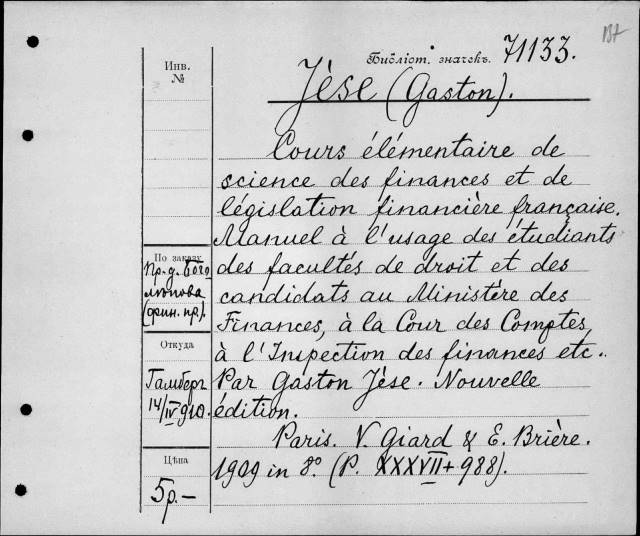 ВФ
Инв.
№
Библіот. значекъ. 71133.
Jèse (Gaston).
Cours élémentaire de
science des finances et de
législation financière française.
Manuel à l'usage des étudiants
des facultés de droit et des
candidats au Ministère des
Finances, à la Cour des Comptes,
à l'Inspection des finances etc.
Par Gaston Jèse. Nouvelle
édition.
Paris. V. Giard & E. Brière.
1909 in 8º. (P. XXXVII + 988).
По заказу
Пр. д. Бого
лѣпова
(фин. пр).
Откуда
Гамберъ
14/IV 910.
Цѣна
5р.–